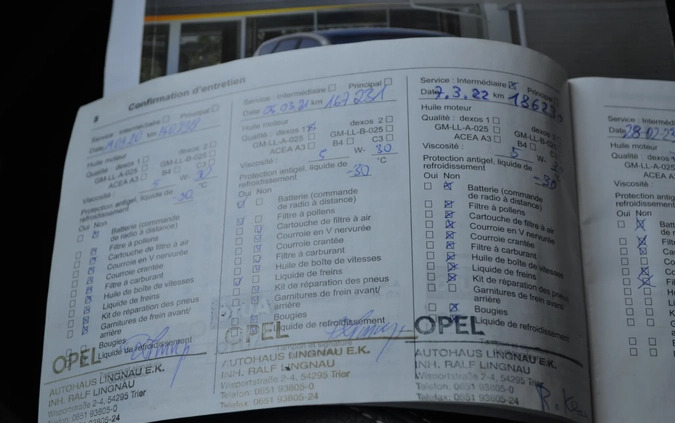 8 Confirmation d'entretien
Service : Intermédiaire Principal
Date km
Huile moteur
Qualité : dexos 1 dexos 2
GM-LL-A-025 GM-LL-B-025
ACEA A3 B4 C3
Viscosité : 5 W- 30
Protection antigel, liquide de
refroidissement -30 °C
Oui Non
Batterie (commande
de radio à distance)
Filtre à pollens
Cartouche de filtre à air
Courroie en V nervurée
Courroie crantée
Filtre à carburant
Huile de boîte de vitesses
Liquide de freins
Kit de réparation des pneus
Garnitures de frein avant/
arrière
Bougies
Liquide de refroidissement
OPEL
AUTOHAUS LINGNAU E.K.
INH. RALF LINGNAU
Wisportstraße 2-4, 54295 Trier
Telefon: 0651 93805-0
Telefax: 0651 93805-24
Service : Intermédiaire Principal
Date 05.03.21 km 167231
Huile moteur
Qualité : dexos 1 dexos 2
GM-LL-A-025 GM-LL-B-025
ACEA A3 B4 C3
Viscosité : 5 W- 30
Protection antigel, liquide de
refroidissement -30 °C
Oui Non
Batterie (commande
de radio à distance)
Filtre à pollens
Cartouche de filtre à air
Courroie en V nervurée
Courroie crantée
Filtre à carburant
Huile de boîte de vitesses
Liquide de freins
Kit de réparation des pneus
Garnitures de frein avant/
arrière
Bougies
Liquide de refroidissement
OPEL
AUTOHAUS LINGNAU E.K.
INH. RALF LINGNAU
Wisportstraße 2-4, 54295 Trier
Telefon: 0651 93805-0
Telefax: 0651 93805-24
Service : Intermédiaire Principal
Date 7.3.22 km
Huile moteur
Qualité : dexos 1 dexos 2
GM-LL-A-025 GM-LL-B-025
ACEA A3 B4 C3
Viscosité : 5 W-
Protection antigel, liquide de
refroidissement -30
Oui Non
Batterie (commande
de radio à distance)
Filtre à pollens
Cartouche de filtre à air
Courroie en V nervurée
Courroie crantée
Filtre à carburant
Huile de boîte de vitesses
Liquide de freins
Kit de réparation des pneus
Garnitures de frein avant/
arrière
Bougies
Liquide de refroidissement
OPEL
AUTOHAUS LINGNAU E.K.
INH. RALF LINGNAU
Wisportstraße 2-4, 54295 Trier
Telefon: 0651 93805-0
Telefax: 0651 93805-24
Service : Intermédiaire
Date
Huile moteur
Qualité : dexos
GM-LL-A-025
ACEA A3
Viscosité :
Protection antigel, liquide
refroidissement
Oui Non
Batterie
de radio
Filtre à
Cartouche
Courroie
Courroie
Filtre à
Huile
Liquide
Kit de
Garnit
arrière
Boug
Liqui